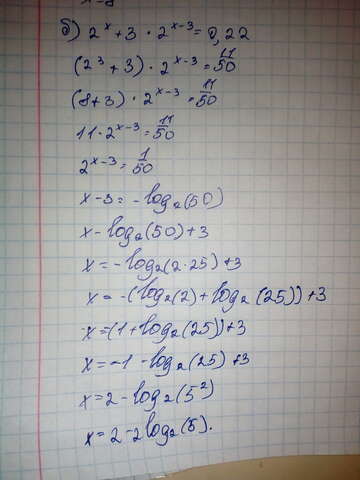 б) 2^x + 3 · 2^(x-3) = 0,22
(2^3 + 3) · 2^(x-3) = 11/50
(8+3) · 2^(x-3) = 11/50
11 · 2^(x-3) = 11/50
2^(x-3) = 1/50
x-3 = -log₂(50)
x-log₂(50)+3
x = -log₂(2·25)+3
x = -(log₂(2)+log₂(25))+3
x=(1+log₂(25))+3
x = -1 -log₂(25)+3
x = 2 - log₂(5²)
x = 2 - 2log₂(5).